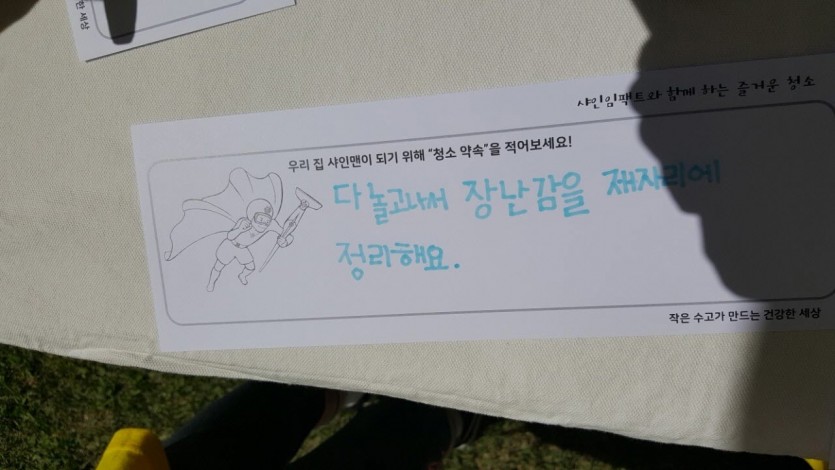 한 세상
샤인임팩트와 함께 하는 즐거운 청소
우리 집 샤인맨이 되기 위해 “청소 약속”을 적어보세요!
다 놀고나서 장난감을 제자리에
정리해요.
작은 수고가 만드는 건강한 세상